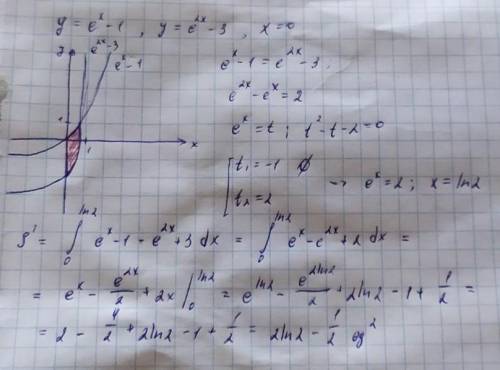 y = e^x - 1 , y = e^{2x} - 3 , x = 0
y
e^{2x} - 3
e^x - 1
1
1
x
e^x - 1 = e^{2x} - 3
e^{2x} - e^x = 2
e^x = t ; t^2 - t - 2 = 0
[ t_1 = -1 ∅
t_2 = 2 → e^x = 2 ; x = ln2
S = ∫_0^{ln2} e^x - 1 - e^{2x} + 3 dx = ∫_0^{ln2} e^x - e^{2x} + 2 dx =
= e^x - e^{2x}/2 + 2x |_0^{ln2} = e^{ln2} - e^{2ln2}/2 + 2ln2 - 1 + 1/2 =
= 2 - 4/2 + 2ln2 - 1 + 1/2 = 2ln2 - 1/2 ед^2